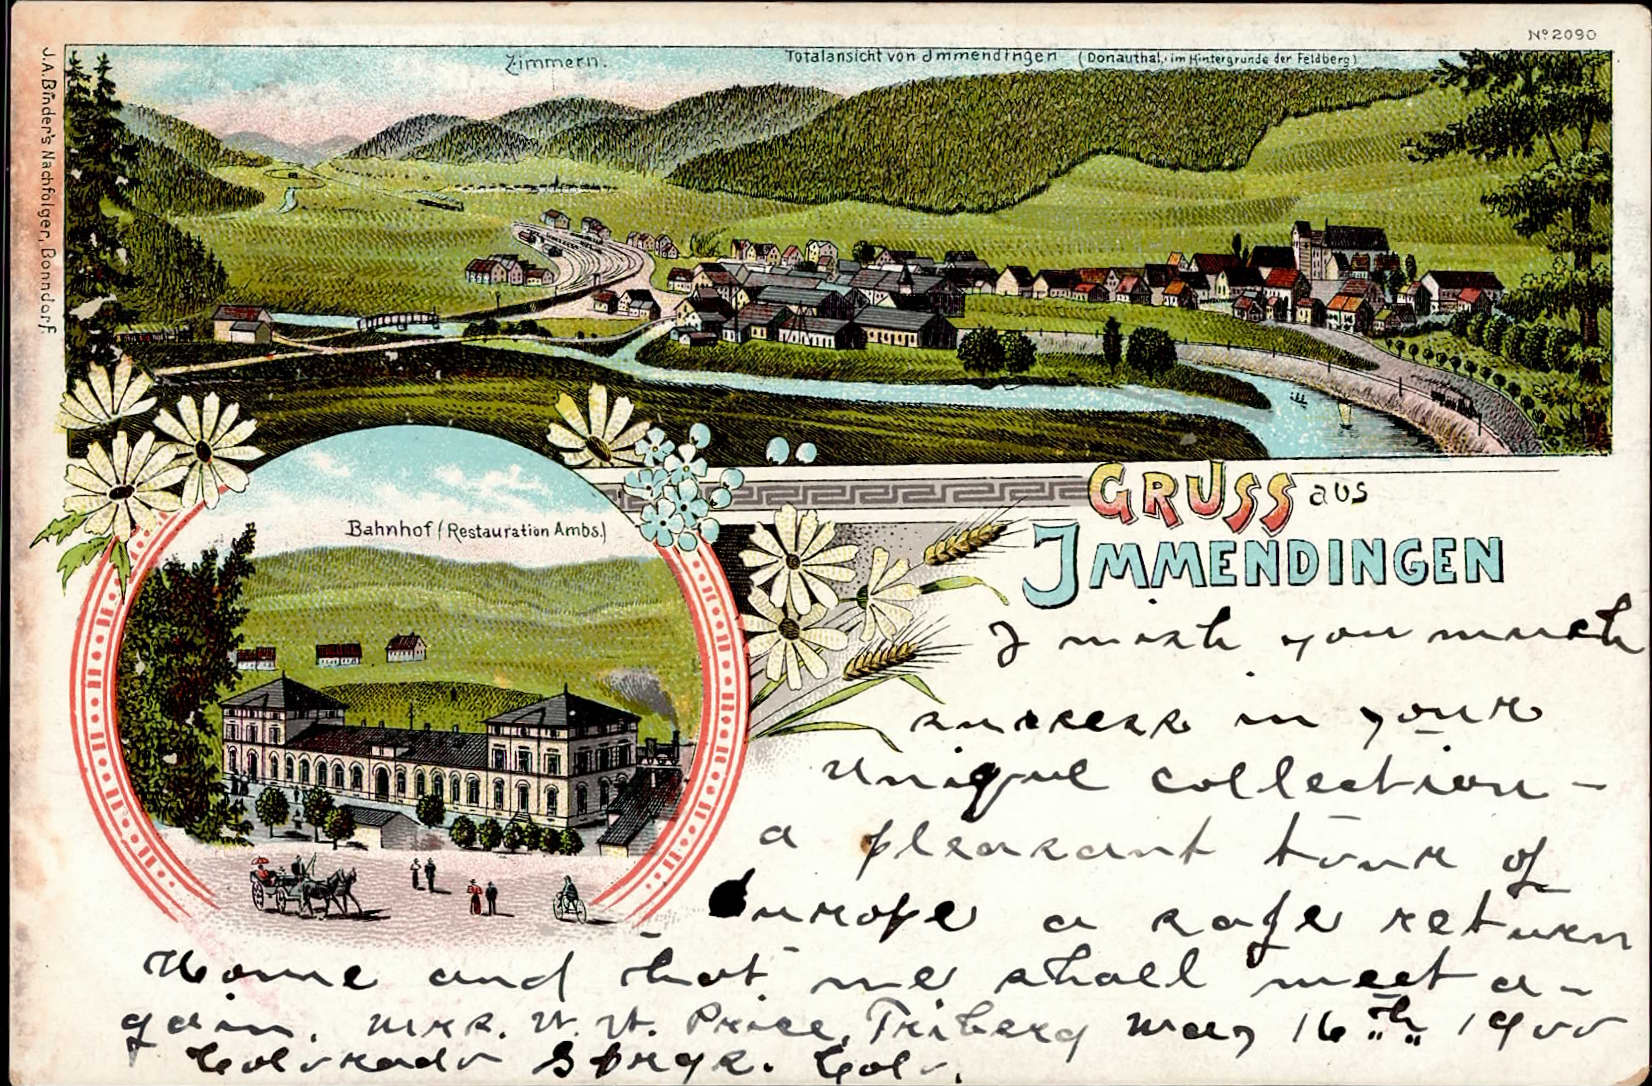 Nº 2090
Zimmern.
Totalansicht von Immendingen (Donauthal, im Hintergrunde der Feldberg)
J.A. Binder's Nachfolger, Bonndorf.
Bahnhof (Restauration Ambs.)
GRUSS aus
IMMENDINGEN
I wish you much
success in your
unique collection –
a pleasant tour of
Europe a safe return
Home and that we shall meet a-
gain. Mrs. Price, Triberg May 16th 1900
Colorado Spngs. Colo.